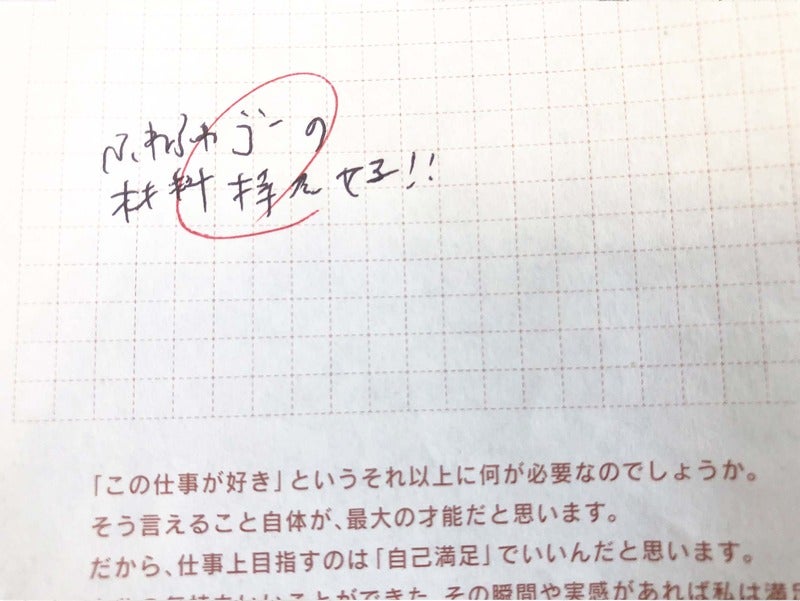 ふわふわ ゴーの
材料揃えせる!!
「この仕事が好き」というそれ以上に何が必要なのでしょうか。
そう言えること自体が、最大の才能だと思います。
だから、仕事上目指すのは「自己満足」でいいんだと思います。
いいことができた、その瞬間や実感があれば私は満足